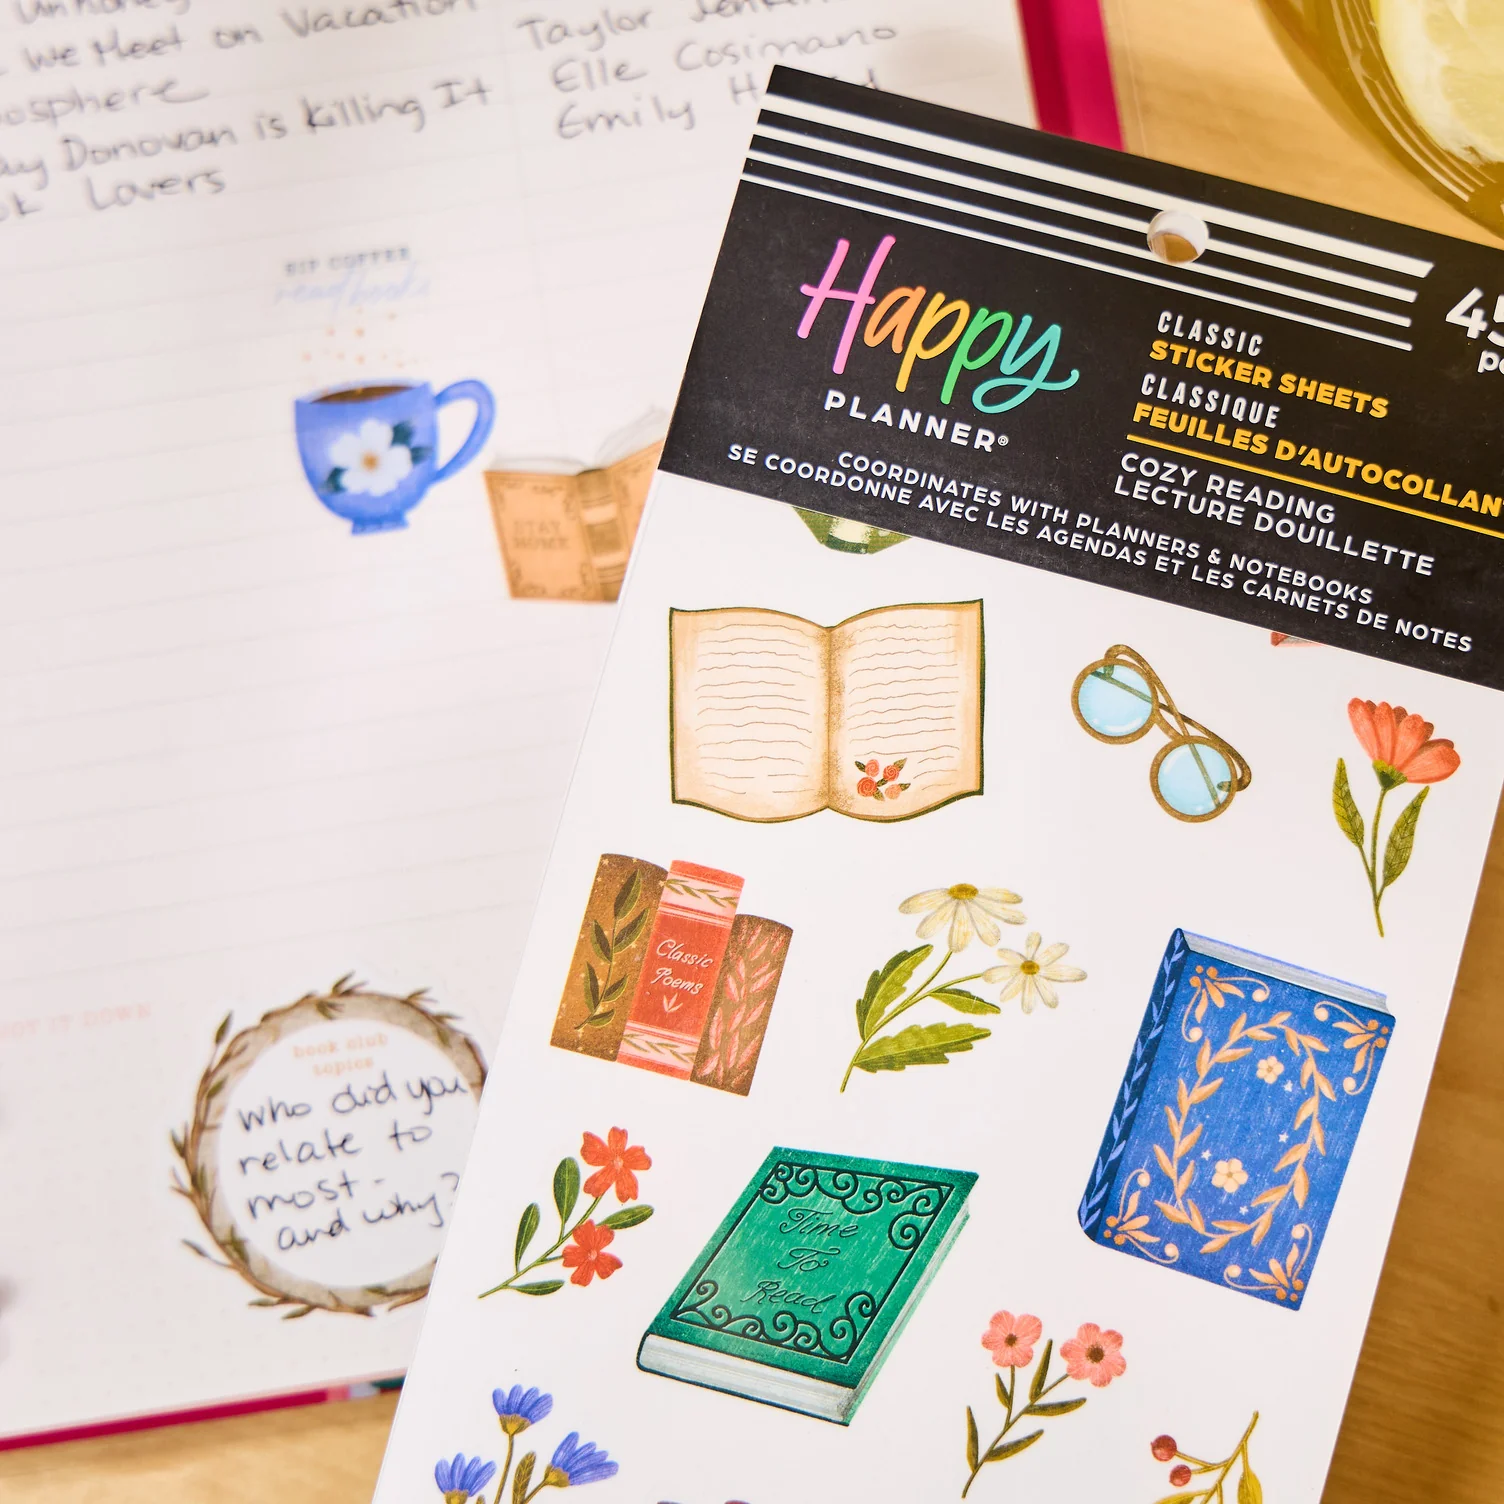 We Meet on Vacation
Taylor
Elle Cosimano
Donovan is Killing It
Emily
Lovers
SIP COFFEE
read books
STAY
HOME
book club
topics
who did you
relate to
most -
and why?
Happy
PLANNER®
COORDINATES WITH PLANNERS & NOTEBOOKS
SE COORDONNE AVEC LES AGENDAS ET LES CARNETS DE NOTES
CLASSIC
STICKER SHEETS
CLASSIQUE
FEUILLES D'AUTOCOLLAN
COZY READING
LECTURE DOUILLETTE
Classic
Poems
Time
To
Read